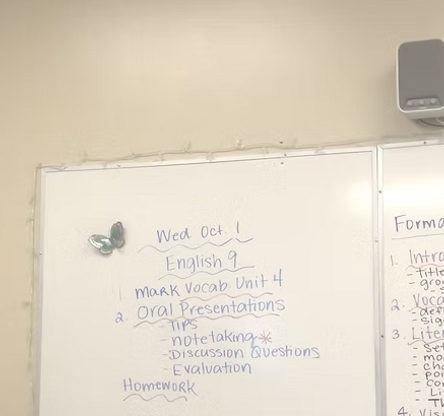 Wed Oct. 1
English 9
1 Mark Vocab Unit 4
2. Oral Presentations
- Tips
- notetaking *
- Discussion Questions
- Evaluation
Homework
Forma
1. Intro
- Title
- gro
2. Voca
- def
- sig
3. Liter
- Set
- mo
- cha
- poi
- co
- Li
- Th
4. Vis